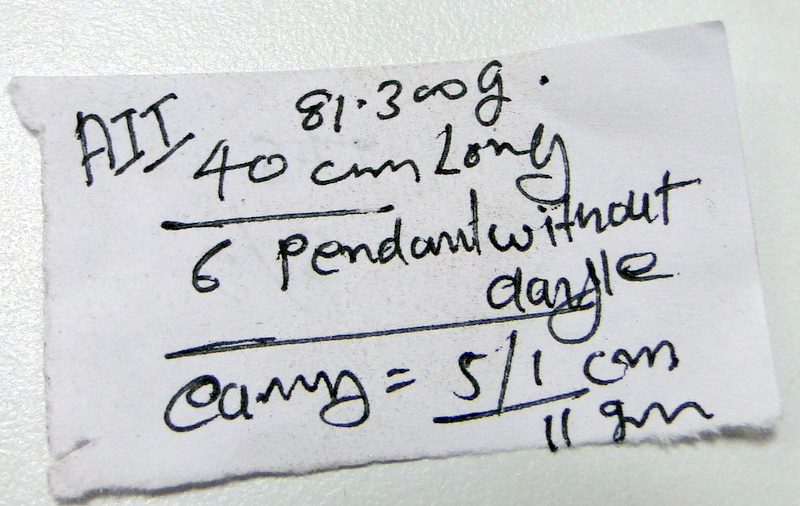 AII 81.300g.
40 cm Long
6 Pendant without
dangle
earing = 5/1 cm
11 gm